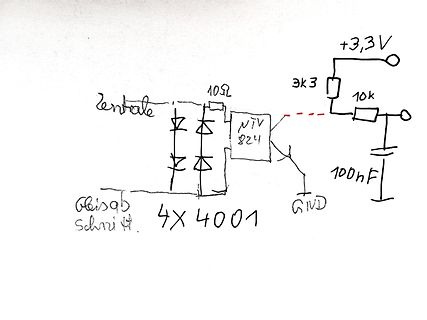 +3,3V
3k3
10k
10Ω
Zentrale
824
100nF
Gleisab
Schnitt.
4X 4001
GND